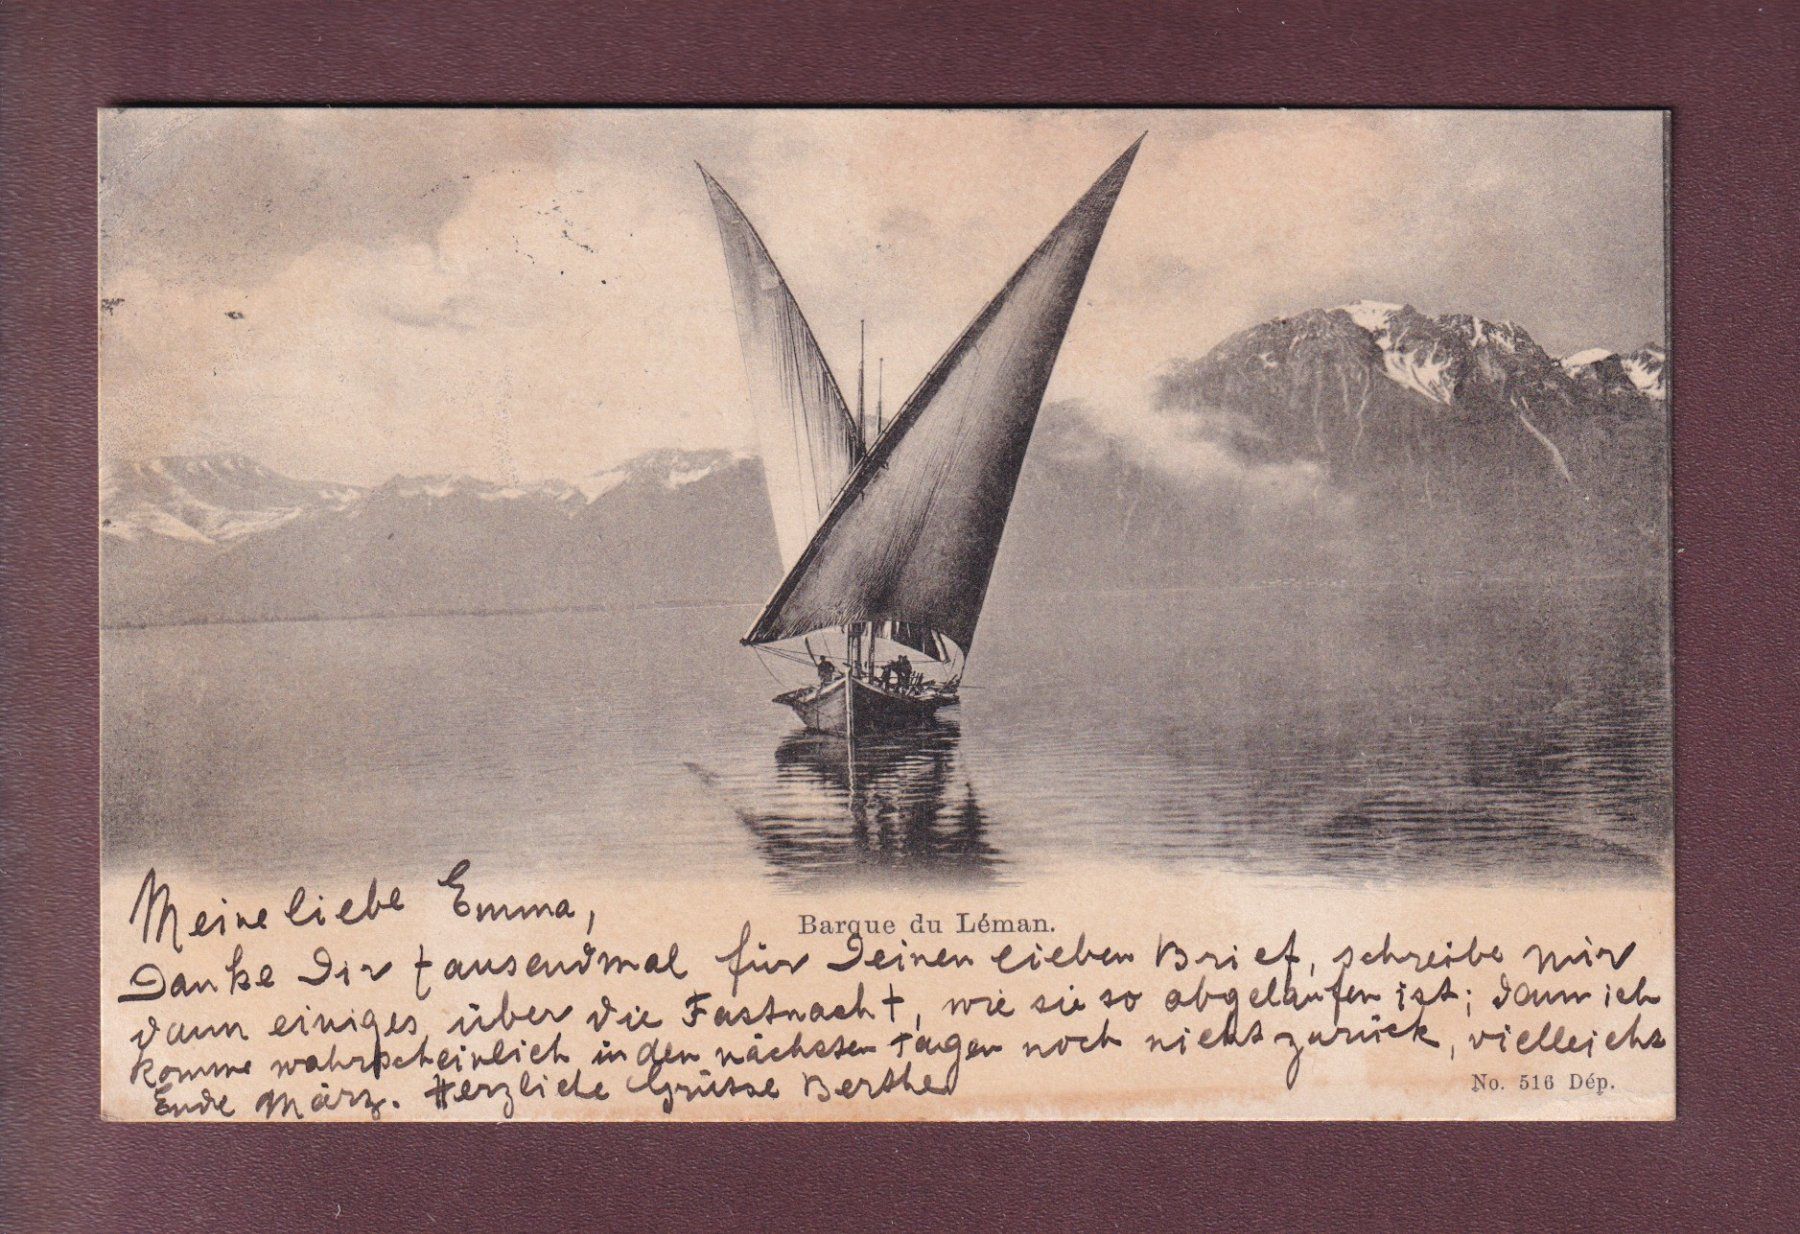 Meine liebe Emma,
Barque du Léman.
Danke Dir tausendmal für Deinen lieben Brief, schreibe mir
dann einiges über die Fastnacht, wie sie so abgelaufen ist; denn ich
komme wahrscheinlich in den nächsten Tagen noch nicht zurück, vielleicht
Ende März. Herzliche Grüsse Berthe
No. 516 Dép.